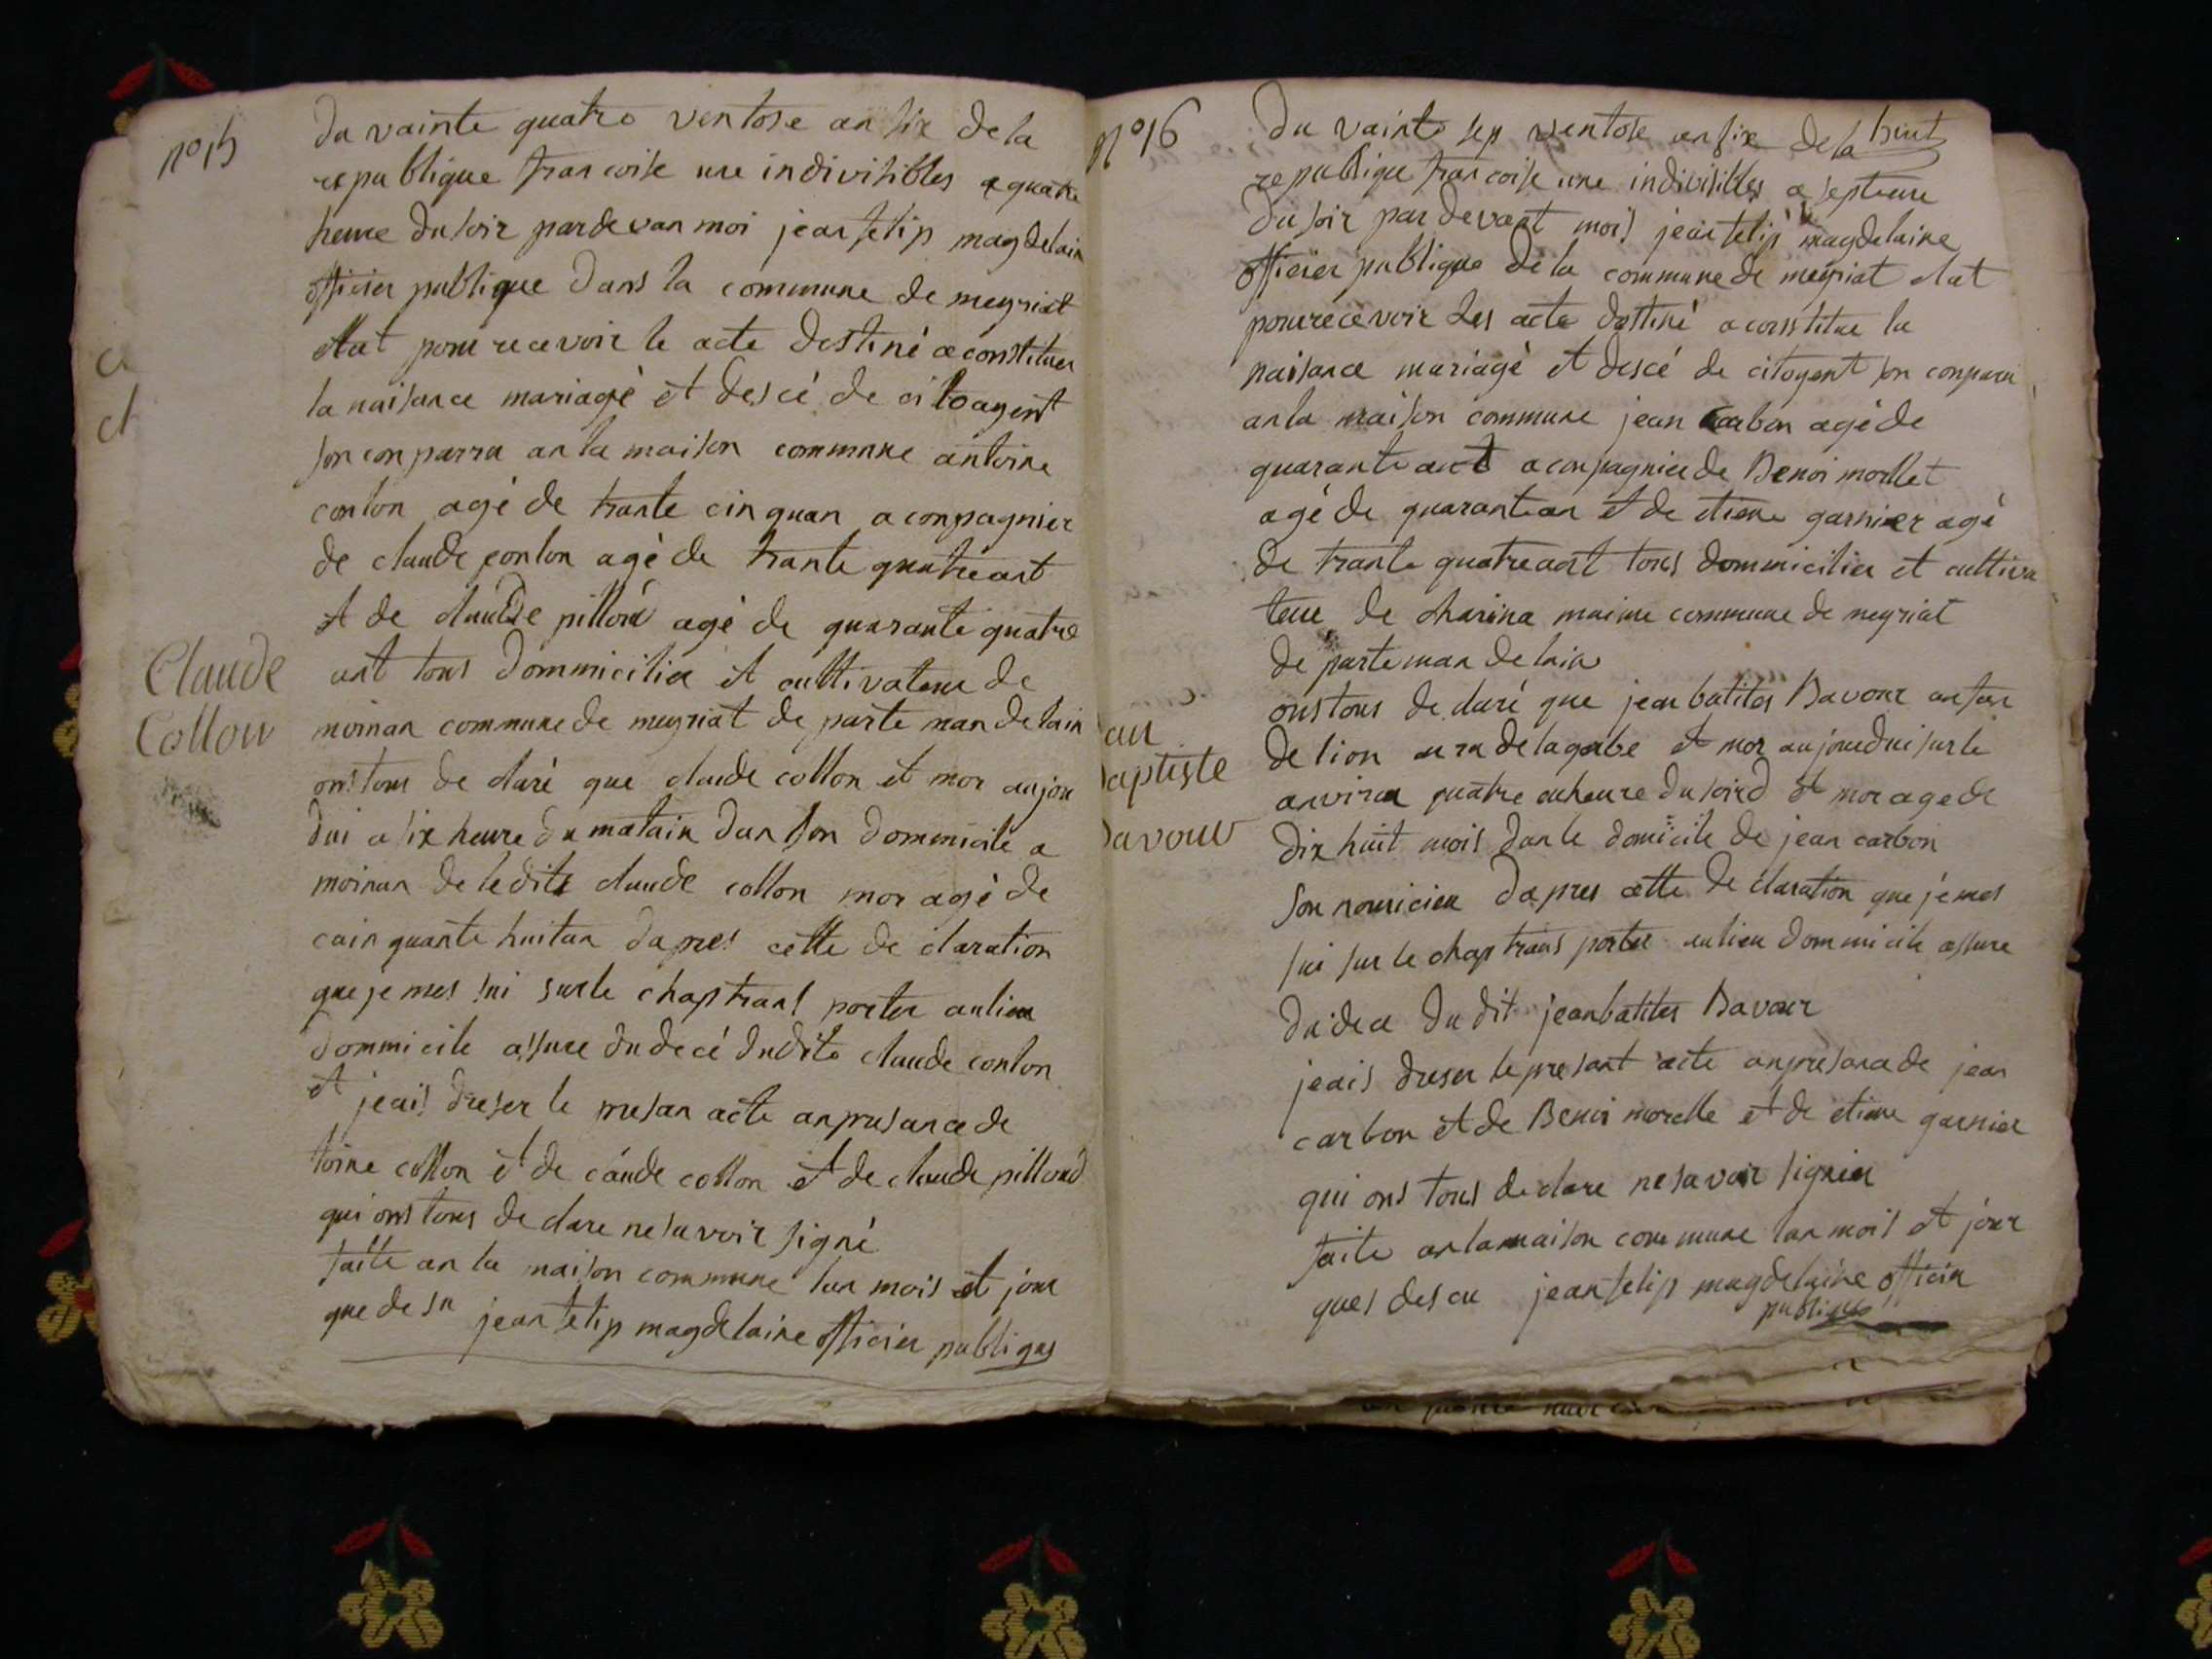 n° 15
du vainte quatre ventose an six de la
republique francoise une indivisibles a quatre
heure du soir par devan moi jean felip magdelain
officier publique dans la commune de meyriat
elut pour recevoir le acte destiné a constituer
la naisance mariagè et descé de citoagent
son conparru an la maison commune antoine
conlon agé de trante cinquan aconpagnier
de claude conlon agé de trante quatre ant
et de claude pilloud agé de quarante quatre
ant tous dommicilier et cultivateur de
moinan commune de meyriat de parte man de lain
ons tous de claré que claude collon et mor aujou
dui a six heure du matain dan son dommicile a
moinan de ledite claude collon mor agé de
cainquante huitan dapres cette de claration
que je mes sui surle chap trans porter aulieu
dommicile assure du decé dudite claude conlon
et jeais dreser le presan acte anpresance de
toine collon et de claude collon et de claude pilloud
qui ons tous de clare ne savoir signé
faite an la maison commune lan mois et jour
que desu jean felip magdelaine officier publiques
Claude
Collon
n° 16
huit
du vainte sep ventose an six de la
republique francoise une indivisibles a septeure
du soir par devant mois jean felip magdelaine
officier publique de la commune de meyriat elut
pour recevoir les acte destiné a consstitue la
naisance mariagè et descé de citoyent son conparu
an la maison commune jean carbon agé de
quarante ant aconpagnier de Benoi morllet
agé de quarantean et de etiene garnier agé
de trante quatre ant tous dommicilier et cultiva
teur de charina maime commune de meyriat
de parteman de lain
ons tous de claré que jean batites Davour anfan
de lion de la et mor aujourdui surle
anviron quatre heure du soird et mor age de
dix huit mois dan le domicile de jean carbon
son nouricieu dapres cette de claration que je mes
sui sur le chap trans porter aulieu dommicile assure
du dece du dit jean batites Davour
jeais dreser le presant acte anpresance de jean
carbon et de Benoi morelle et de etiene garnier
qui ons tous de clare ne savoir signier
faite an la maison commune lan mois et jour
ques desu jean felip magdelaine officier
publique
an
aptiste
avour